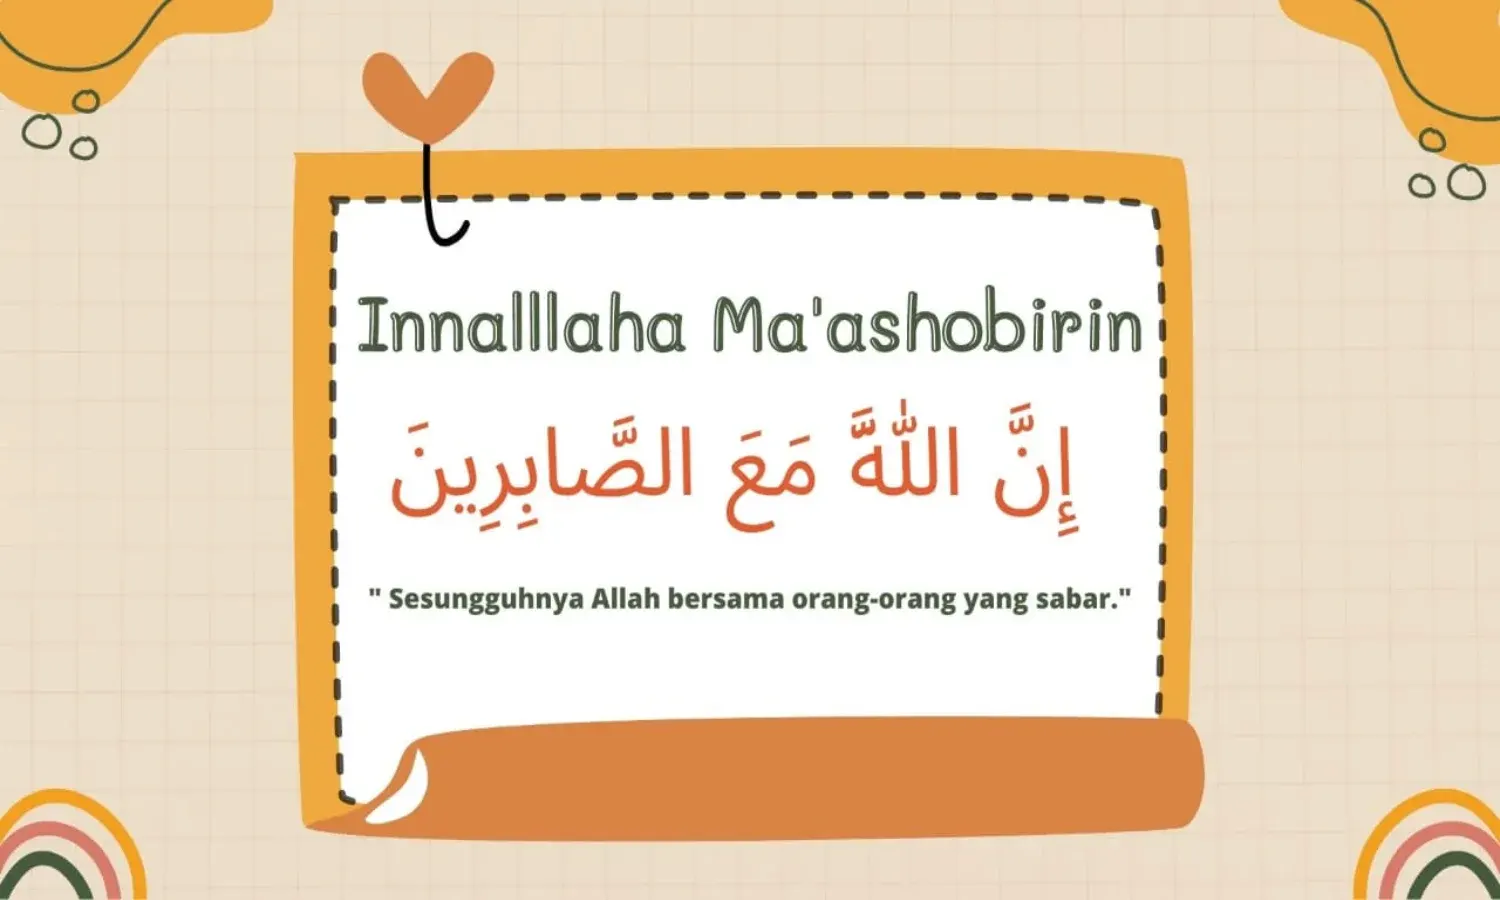 Innalllaha Ma'ashobirin
إِنَّ اللّٰهََّ مَعَ الصَّابِرِينَ
" Sesungguhnya Allah bersama orang-orang yang sabar."